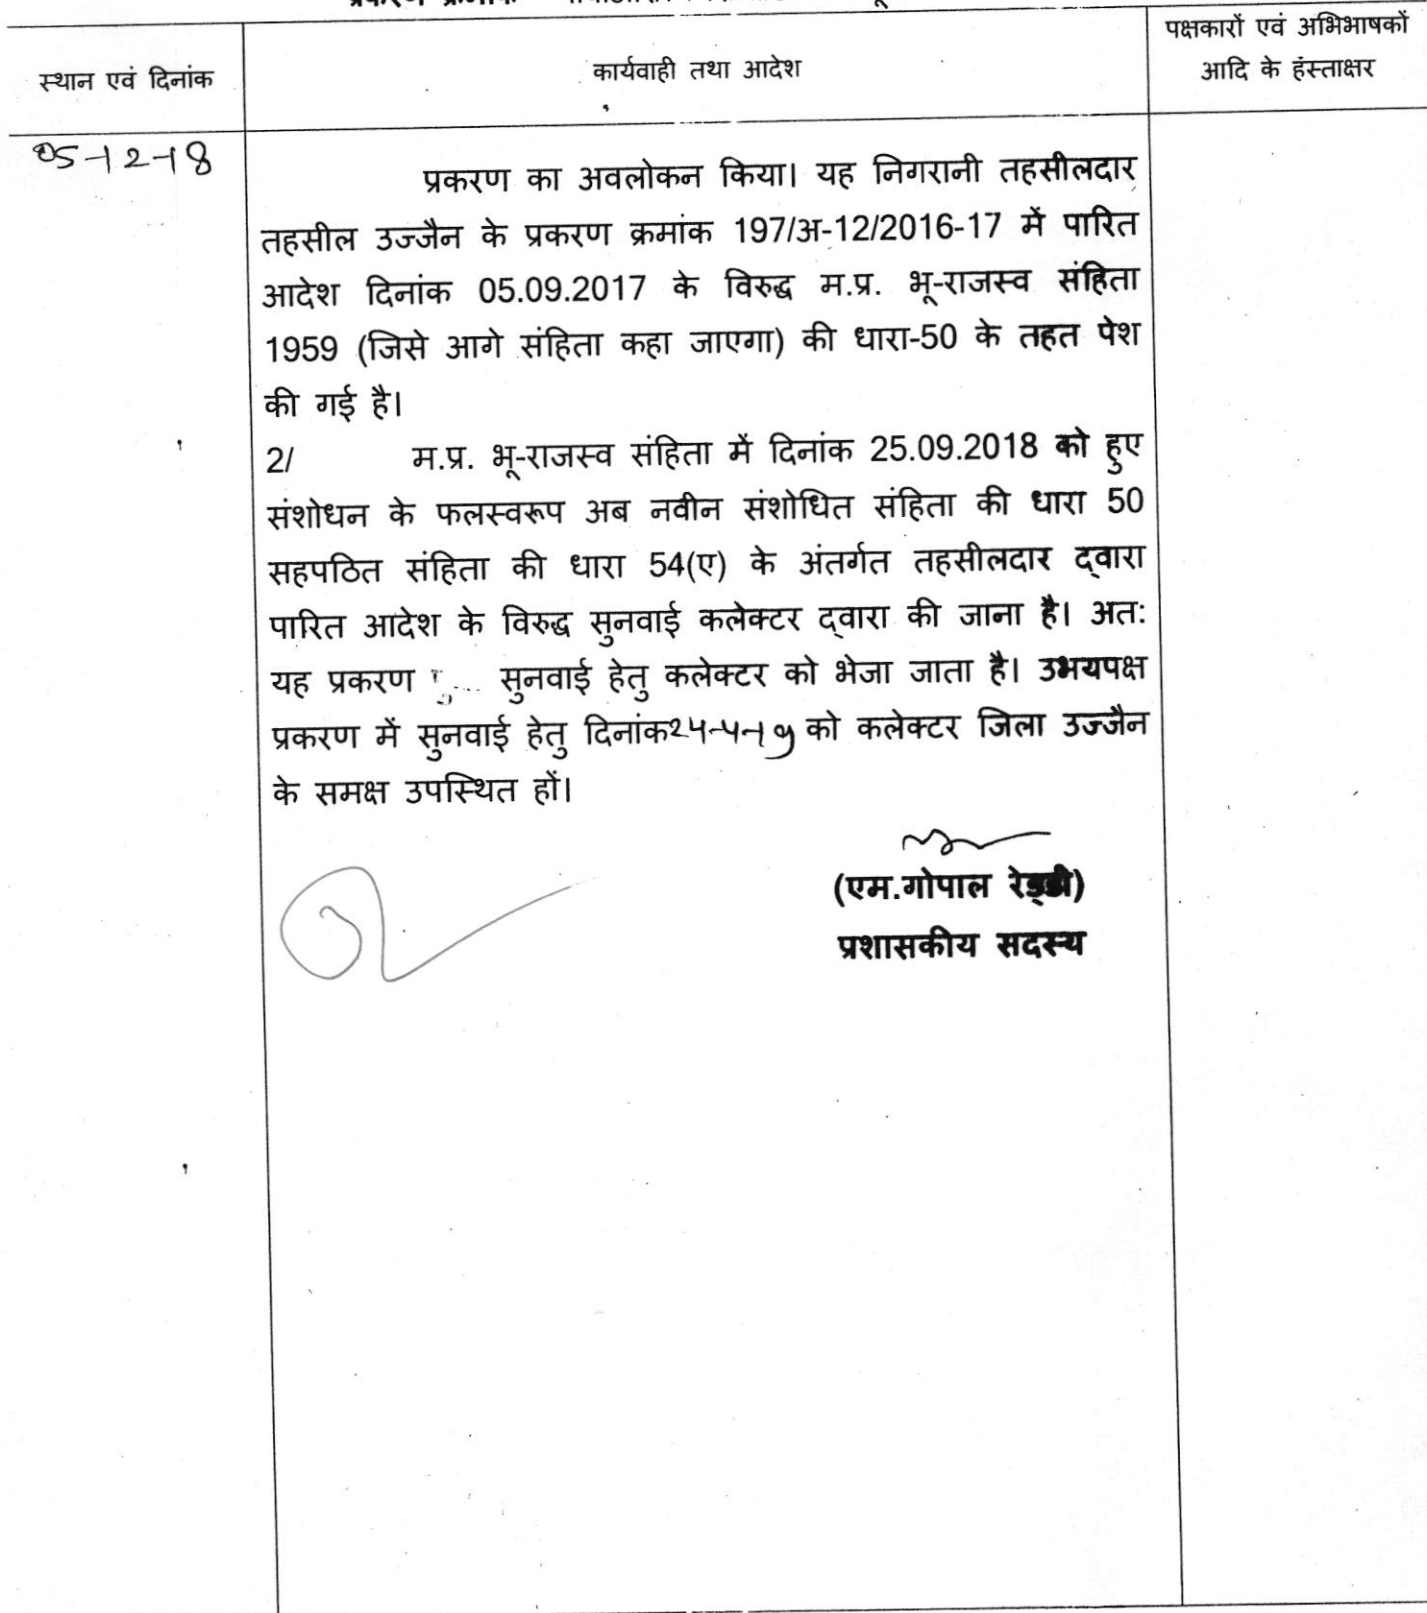 प्रकरण क्रमांक
स्थान एवं दिनांक
कार्यवाही तथा आदेश
पक्षकारों एवं अभिभाषकों
आदि के हंस्ताक्षर
05-12-18
प्रकरण का अवलोकन किया। यह निगरानी तहसीलदार
तहसील उज्जैन के प्रकरण क्रमांक 197/अ-12/2016-17 में पारित
आदेश दिनांक 05.09.2017 के विरुद्ध म.प्र. भू-राजस्व संहिता
1959 (जिसे आगे संहिता कहा जाएगा) की धारा-50 के तहत पेश
की गई है।
2/ म.प्र. भू-राजस्व संहिता में दिनांक 25.09.2018 को हुए
संशोधन के फलस्वरूप अब नवीन संशोधित संहिता की धारा 50
सहपठित संहिता की धारा 54(ए) के अंतर्गत तहसीलदार द्वारा
पारित आदेश के विरुद्ध सुनवाई कलेक्टर द्वारा की जाना है। अतः
यह प्रकरण सुनवाई हेतु कलेक्टर को भेजा जाता है। उभयपक्ष
प्रकरण में सुनवाई हेतु दिनांक को कलेक्टर जिला उज्जैन
के समक्ष उपस्थित हों।
(एम.गोपाल रेड्डी)
प्रशासकीय सदस्य